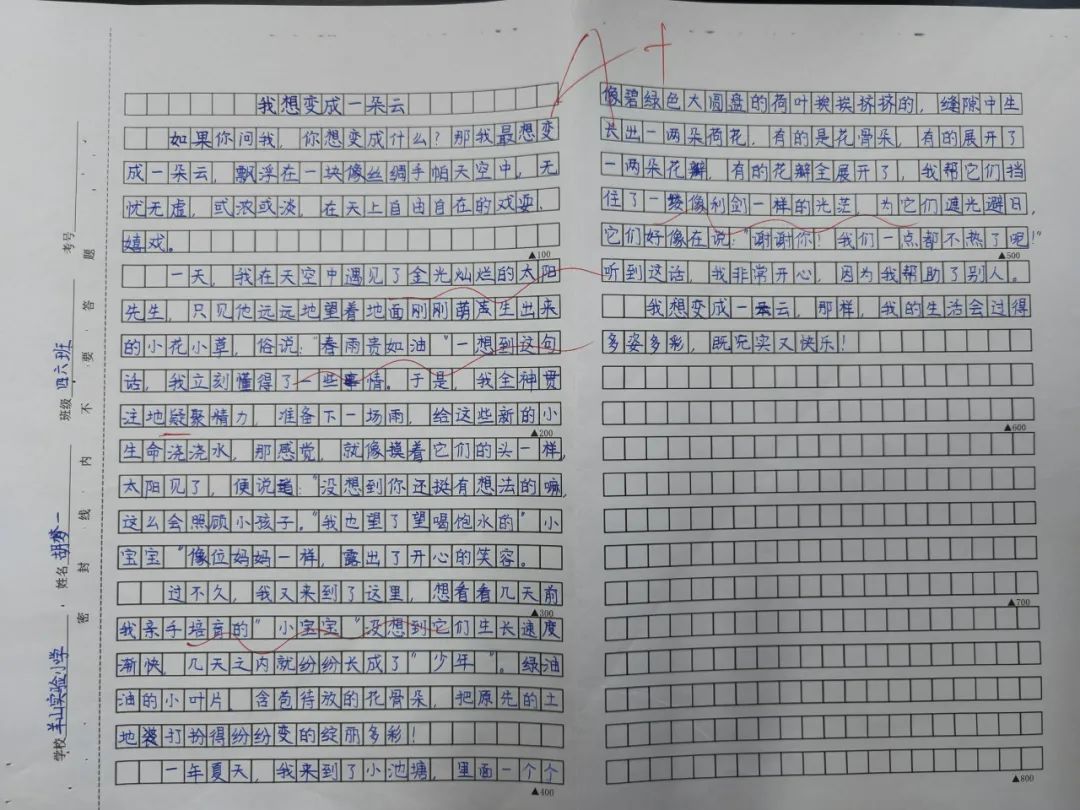 我想变成一朵云
如果你问我，你想变成什么？那我最想变
成一朵云，飘浮在一块像丝绸手帕天空中，无
忧无虑，或浓或淡，在天上自由自在的戏耍、
嬉戏。
▲100
一天，我在天空中遇见了金光灿烂的太阳
先生，只见他远远地望着地面刚刚萌芽生出来
的小花小草，俗说："春雨贵如油"一想到这句
话，我立刻懂得了一些事情。于是，我全神贯
注地疑聚精力，准备下一场雨，给这些新的小
▲200
生命浇浇水，那感觉，就像摸着它们的头一样，
太阳见了，便说道："没想到你还挺有想法的嘛，
这么会照顾小孩子。"我也望了望喝饱水的"小
宝宝"像位妈妈一样，露出了开心的笑容。
过不久，我又来到了这里，想看看几天前
▲300
我亲手培育的"小宝宝"没想到它们生长速度
渐快，几天之内就纷纷长成了"少年"。绿油
油的小叶片，含苞待放的花骨朵，把原先的土
地装打扮得纷纷变的绽丽多彩！
一年夏天，我来到了小池塘，里面一个个
▲400
像碧绿色大圆盘的荷叶挨挨挤挤的，缝隙中生
长出一两朵荷花，有的是花骨朵，有的展开了
一两朵花瓣，有的花瓣全展开了，我帮它们挡
住了一像利剑一样的光茫，为它们遮光避日，
它们好像在说："谢谢你！我们一点都不热了呢！"
▲500
听到这话，我非常开心，因为我帮助了别人。
我想变成一云，那样，我的生活会过得
多姿多彩，既充实又快乐！
▲600
▲700
▲800
学校 羊山实验小学 姓名 胡梦一 班级 四六班 考号
密 封 线 内 不 要 答 题